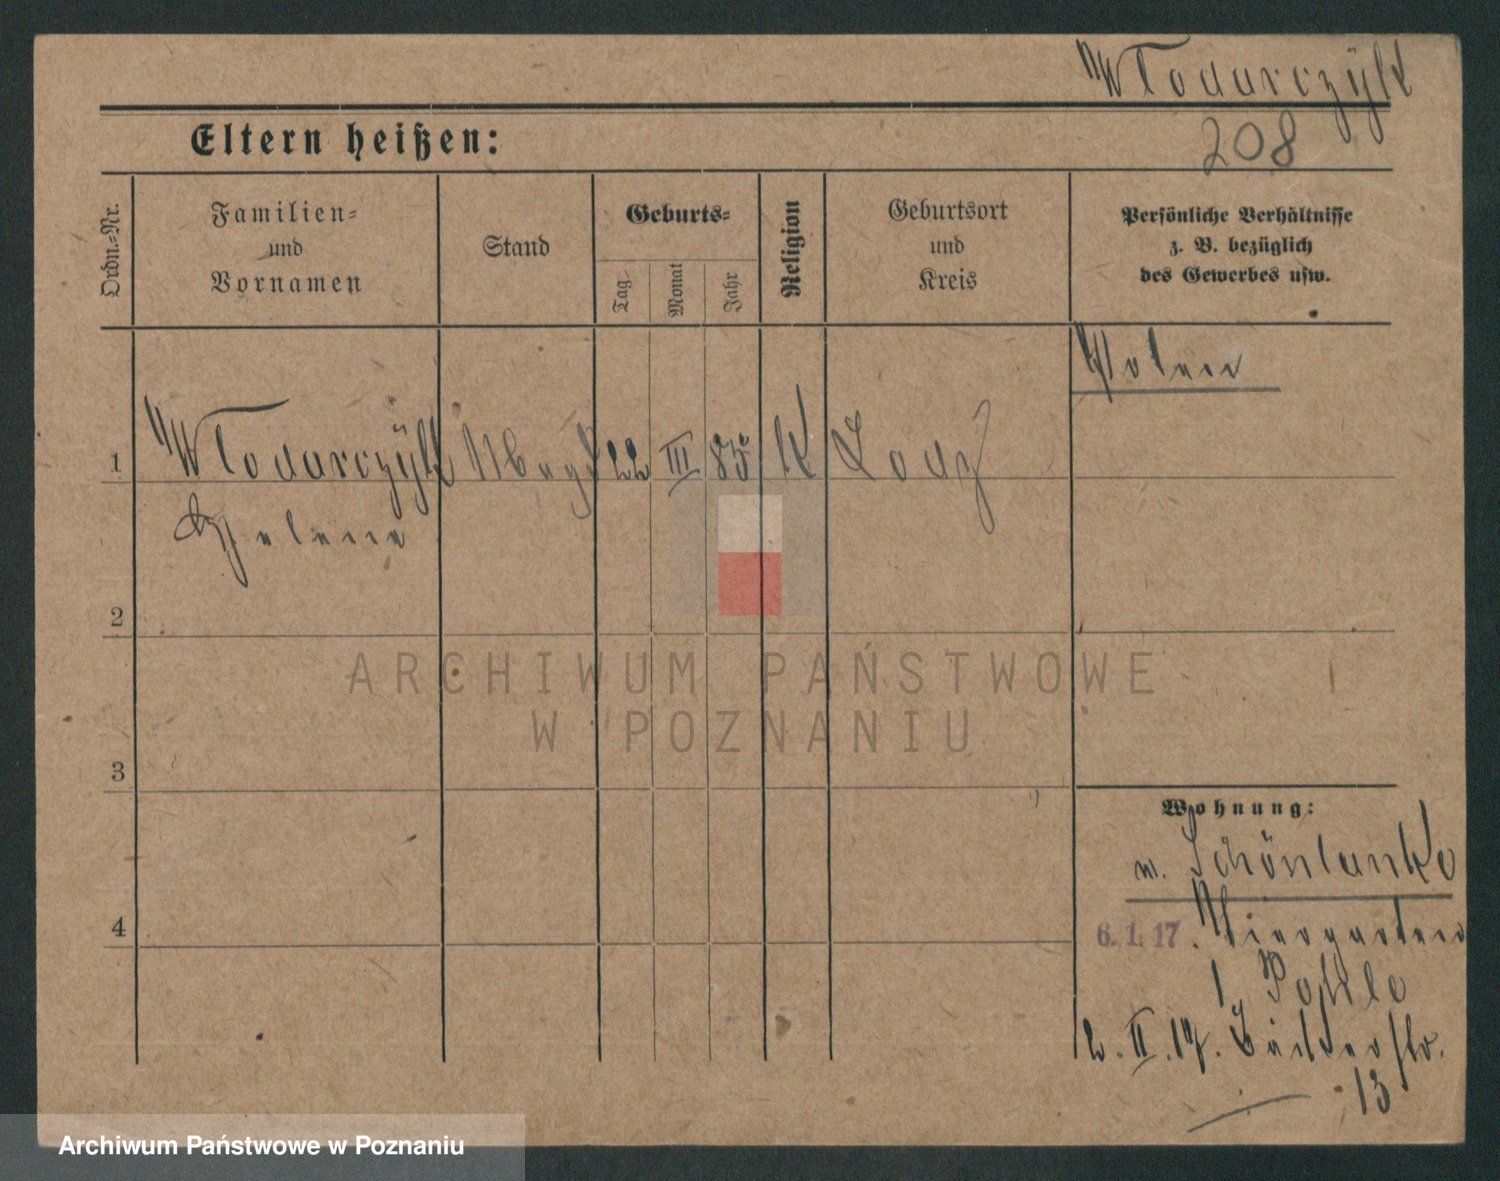 Wlodarczÿk
Eltern heißen:
208
Ordn.=Nr.
Familien=
und
Vornamen
Stand
Geburts=
Tag
Monat
Jahr
Religion
Geburtsort
und
Kreis
Persönliche Verhältnisse
z. B. bezüglich
des Gewerbes usw.
Polen
1 Wlodarczÿk Magd 22 III 85 K Lodz
Helene
2
3
4
Wohnung:
w. Schönlanke
6. 1. 17. Tiergarten
2. II. 17. Bäckerstr.
13
ARCHIWUM PAŃSTWOWE
W POZNANIU
Archiwum Państwowe w Poznaniu